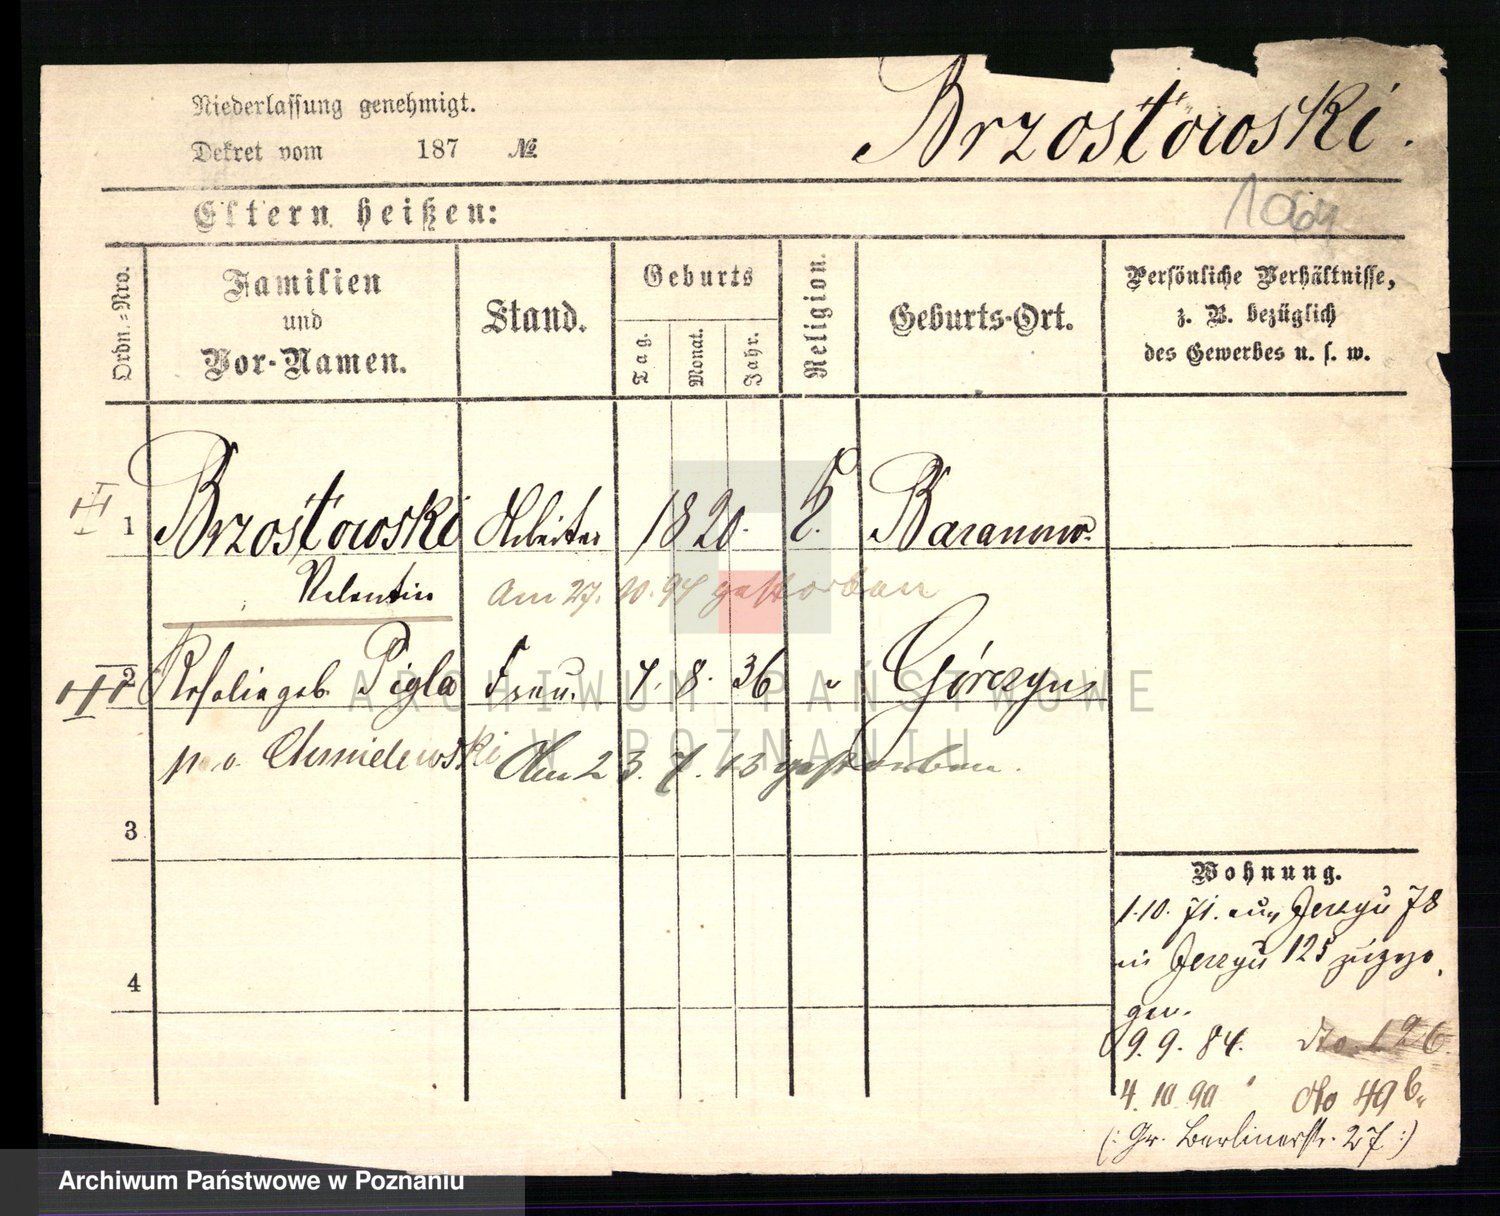 Niederlassung genehmigt.
Dekret vom 187 №
Brzostowski.
1064
Eltern heißen:
Ordn.-Nro.
Familien
und
Vor-Namen.
Stand.
Geburts
Tag.
Monat.
Jahr.
Religion.
Geburts-Ort.
Persönliche Verhältnisse,
z. B. bezüglich
des Gewerbes u. s. w.
1 Brzostowski Arbeiter 1820. Baranowo
Valentin
Am 27. 10. 94 gestorben
2 Rosalia geb. Pigla Frau. 7. 8. 36 " Górczyn
Am 23. 7. 13 gestorben.
3
4
Wohnung.
1.10. 71. aus Jerzyce 78
in Jerzyce 125 zugezo
gen.
9. 9. 84. dto. 126.
4. 10 90 dto 49 b.
(: Gr. Berlinerstr. 27 :)
ARCHIWUM PAŃSTWOWE
W POZNANIU
Archiwum Państwowe w Poznaniu